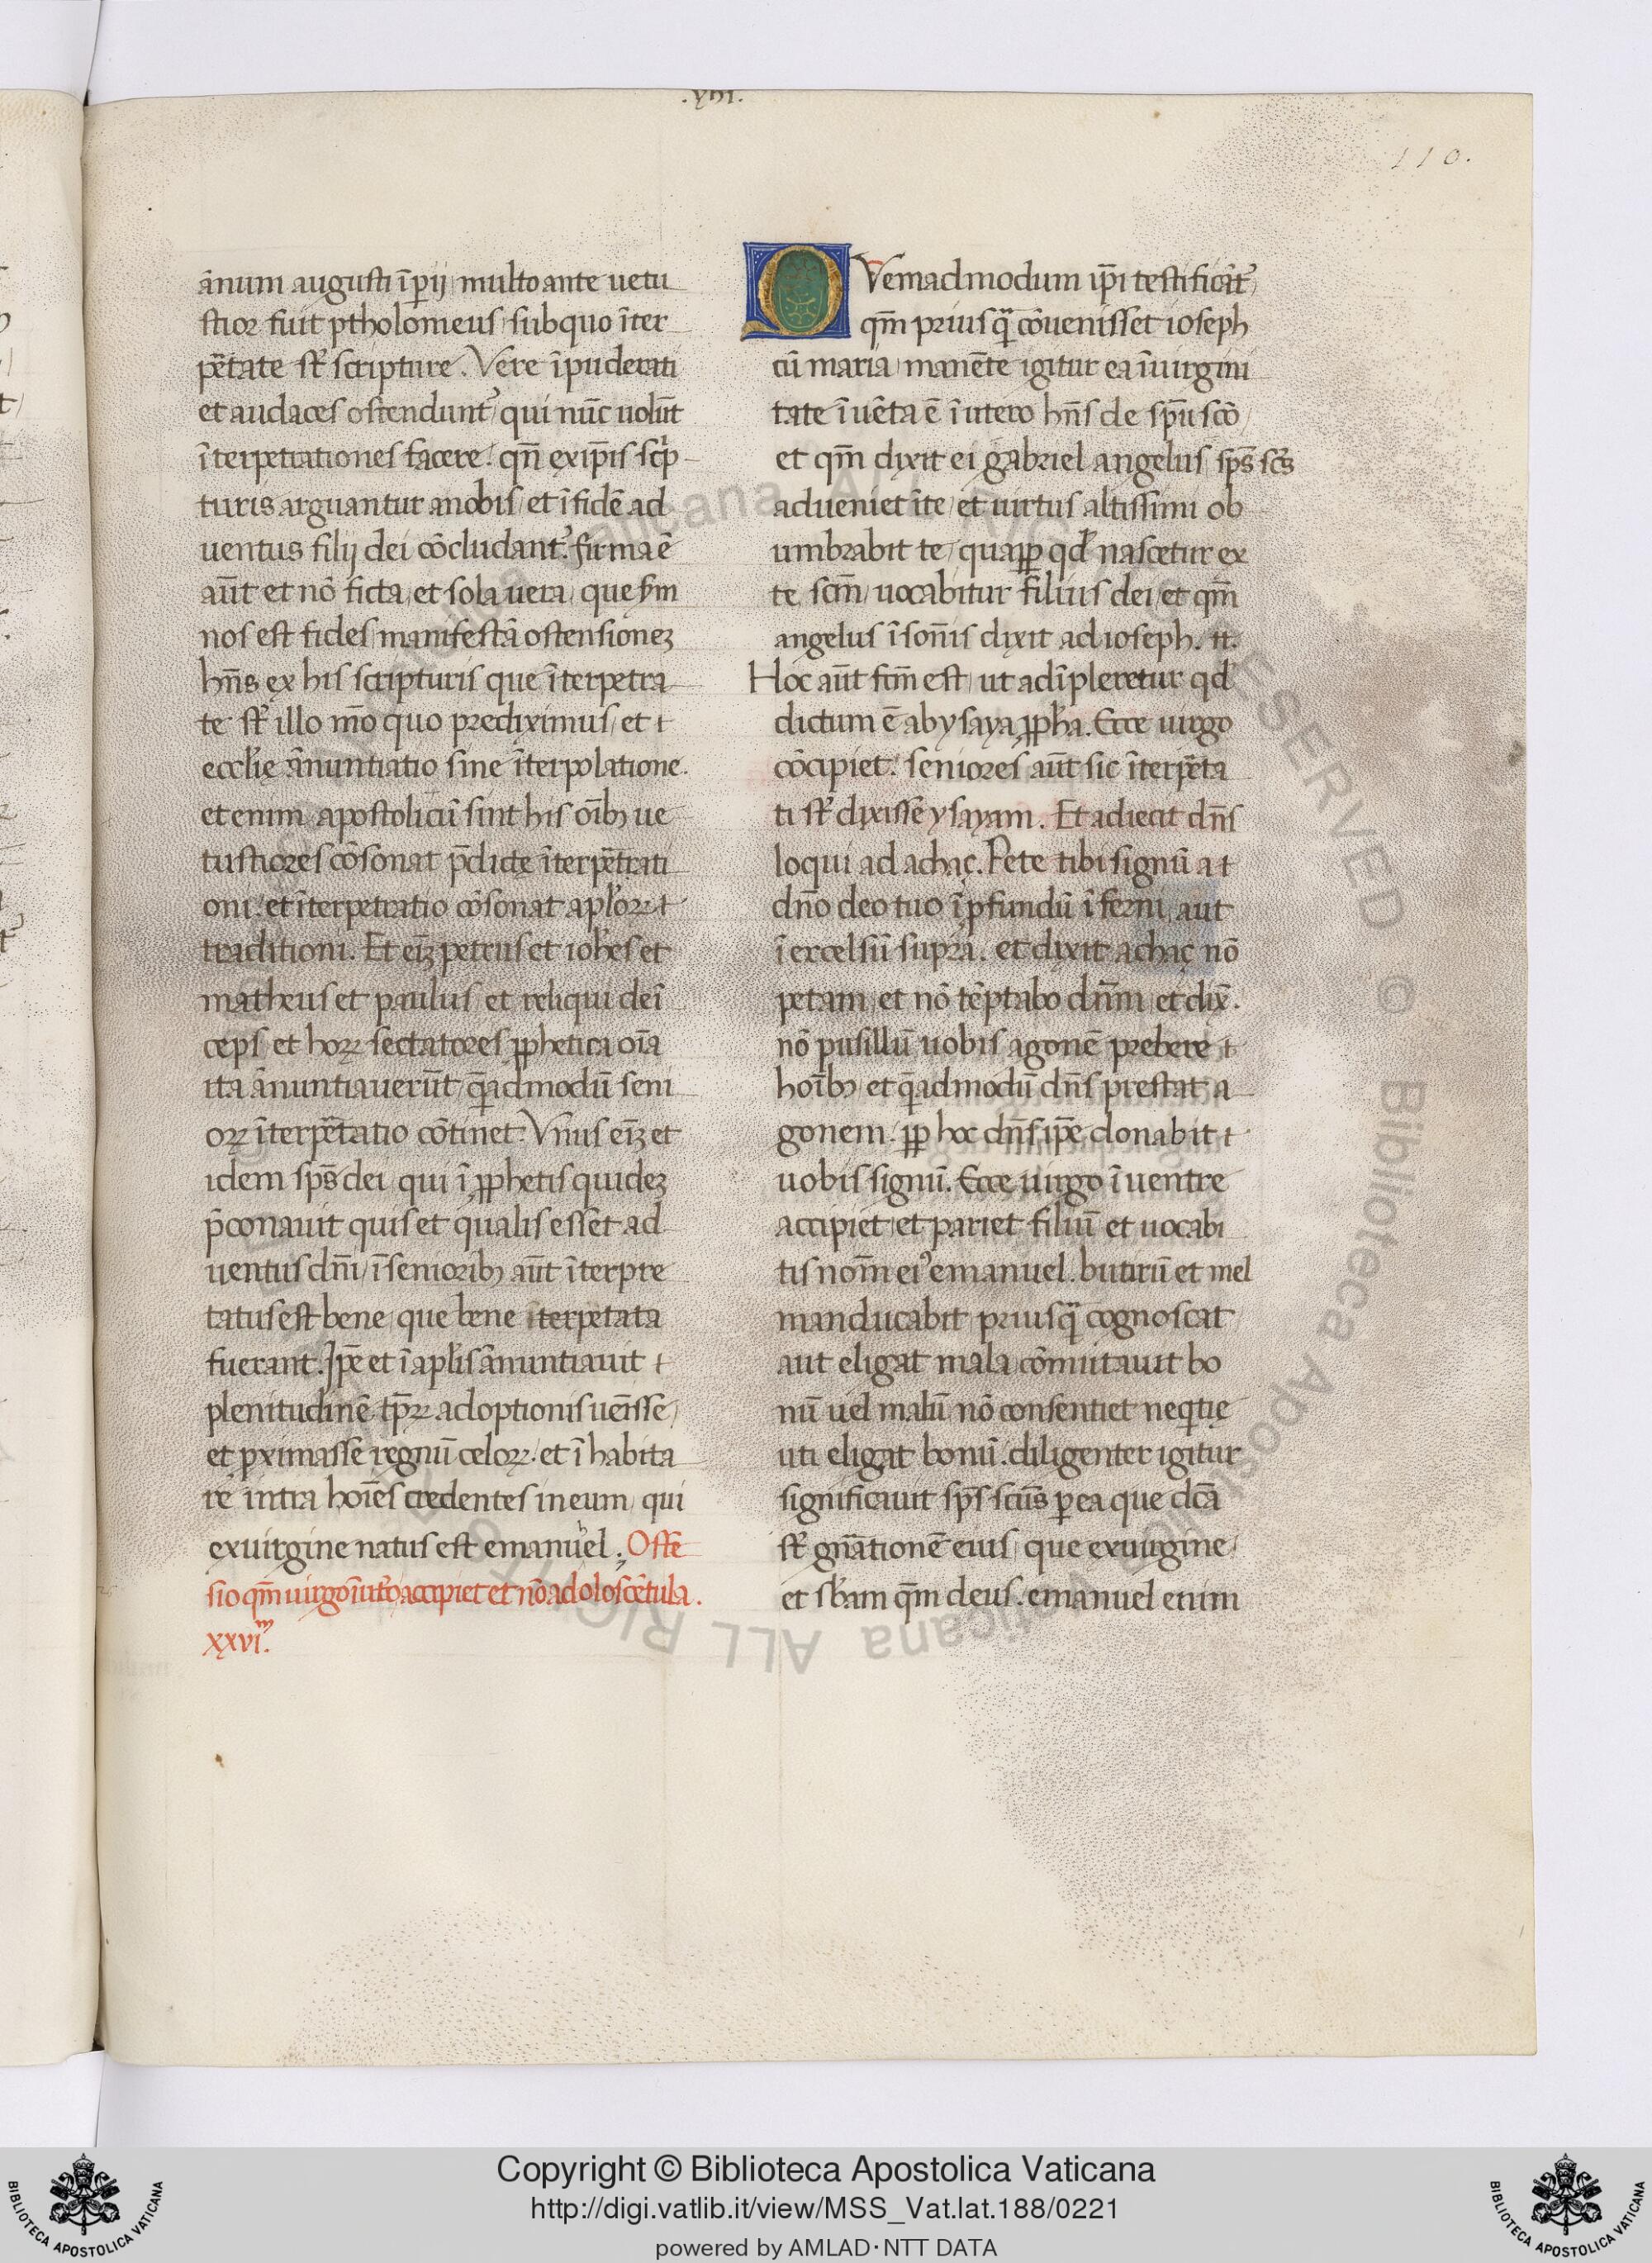 .xiii.
110.
ānum augusti īperij multo ante uetu
stior fuit ptholomeus sub quo īter
p̄tate sr̄ scripture. Vere īpuderati
et audaces ostendunt᷑ qui nūc uolūt
īterpetrationes facere. qn̄ ex ip̄is scͥp
turis arguantur a nobis et ī fidē ad
uentus filij dei cōcludant᷑. firma ē
aūt et nō ficta et sola uera que scd̄m
nos est fides manifestā ostensionez
hn̄s ex his scripturis que īterpetra
te sr̄ illo mō quo prediximus et ī
eccl̄ie ānuntiatio sine īterpolatione.
etenim apostoli cū sint his oīb; ue
tustiores cōsonat p̄dicte īterpētrati
oni. et īterpetratio cōsonat apl̄oꝝ
traditioni. Et eīz petrus et ioh̄es et
matheus et paulus et reliqui deī
ceps et hoꝝ sectatores ꝓphetica oīa
ita ānuntiauerūt q̄admodū seni
oꝝ īterpētatio cōtinet. Vnus eīz et
idem sp̄s dei qui ī ꝓphetis quidez
p̄conauit quis et qualis esset ad
uentus dn̄i ī seniorib; aūt īterpre
tatus est bene que bene īterpetata
fuerant. Ip̄e et ī apl̄is ānuntiauit
plenitudinē tp̄oꝝ adoptionis uēisse
et ꝓximasse regnū celoꝝ. et ī habita
re intra hoīes credentes in eum qui
ex uirgine natus est emanuel. Ostē
sio qm̄ uirgo ī utō accipiet et nō adoloscētula.
xxvi.m
QVemadmodum ip̄i testificāt᷑
qm̄ priusq̄ cōuenisset ioseph
cū maria manēte igitur ea ī uirgini
tate īuēta ē ī utero hn̄s de sp̄u scō
et qm̄ dixit ei gabriel angelus sp̄s scs̄
adueniet ī te et uirtus altissimi ob
umbrabit te quaꝓp̄ qd̄ nascetur ex
te scm̄ uocabitur filius dei et qm̄
angelus ī somn̄is dixit ad ioseph.
Hoc aūt fcm̄ est ut adīpleretur qd̄
dictum ē ab ysaya ꝓph̄a. Ecce uirgo
cōcipiet. seniores aūt sic īterp̄ta
ti sr̄ dixisse ysayam. Et adiecit dn̄s
loqui ad achaç. Pete tibi signū a
dn̄o deo tuo ī ꝓfundū īferni aut
ī excelsū supra. et dixit achaç nō
petam et nō tēptabo dn̄m et dix̄.
nō pusillū uobis agonē prebere
hoīb; et q̄admodū dn̄s prestat a
gonem. ꝓp hoc dn̄s ip̄e donabit
uobis signū. Ecce uirgo ī uentre
accipiet et pariet filiū et uocabi
tis nom̄ ei᷒ emanuel. butirū et mel
manducabit priusq̄ cognoscat
aut eligat mala cōmutauit bo
nū uel malū nō consentiet neq̄tie
uti eligat bonū. diligenter igitur
significauit sp̄s scūs p ea que dcā
sr̄ gn̄ationē eius que ex uirgine
et sb̄am qm̄ deus. emanuel enim
Copyright © Biblioteca Apostolica Vaticana
http://digi.vatlib.it/view/MSS_Vat.lat.188/0221
powered by AMLAD·NTT DATA